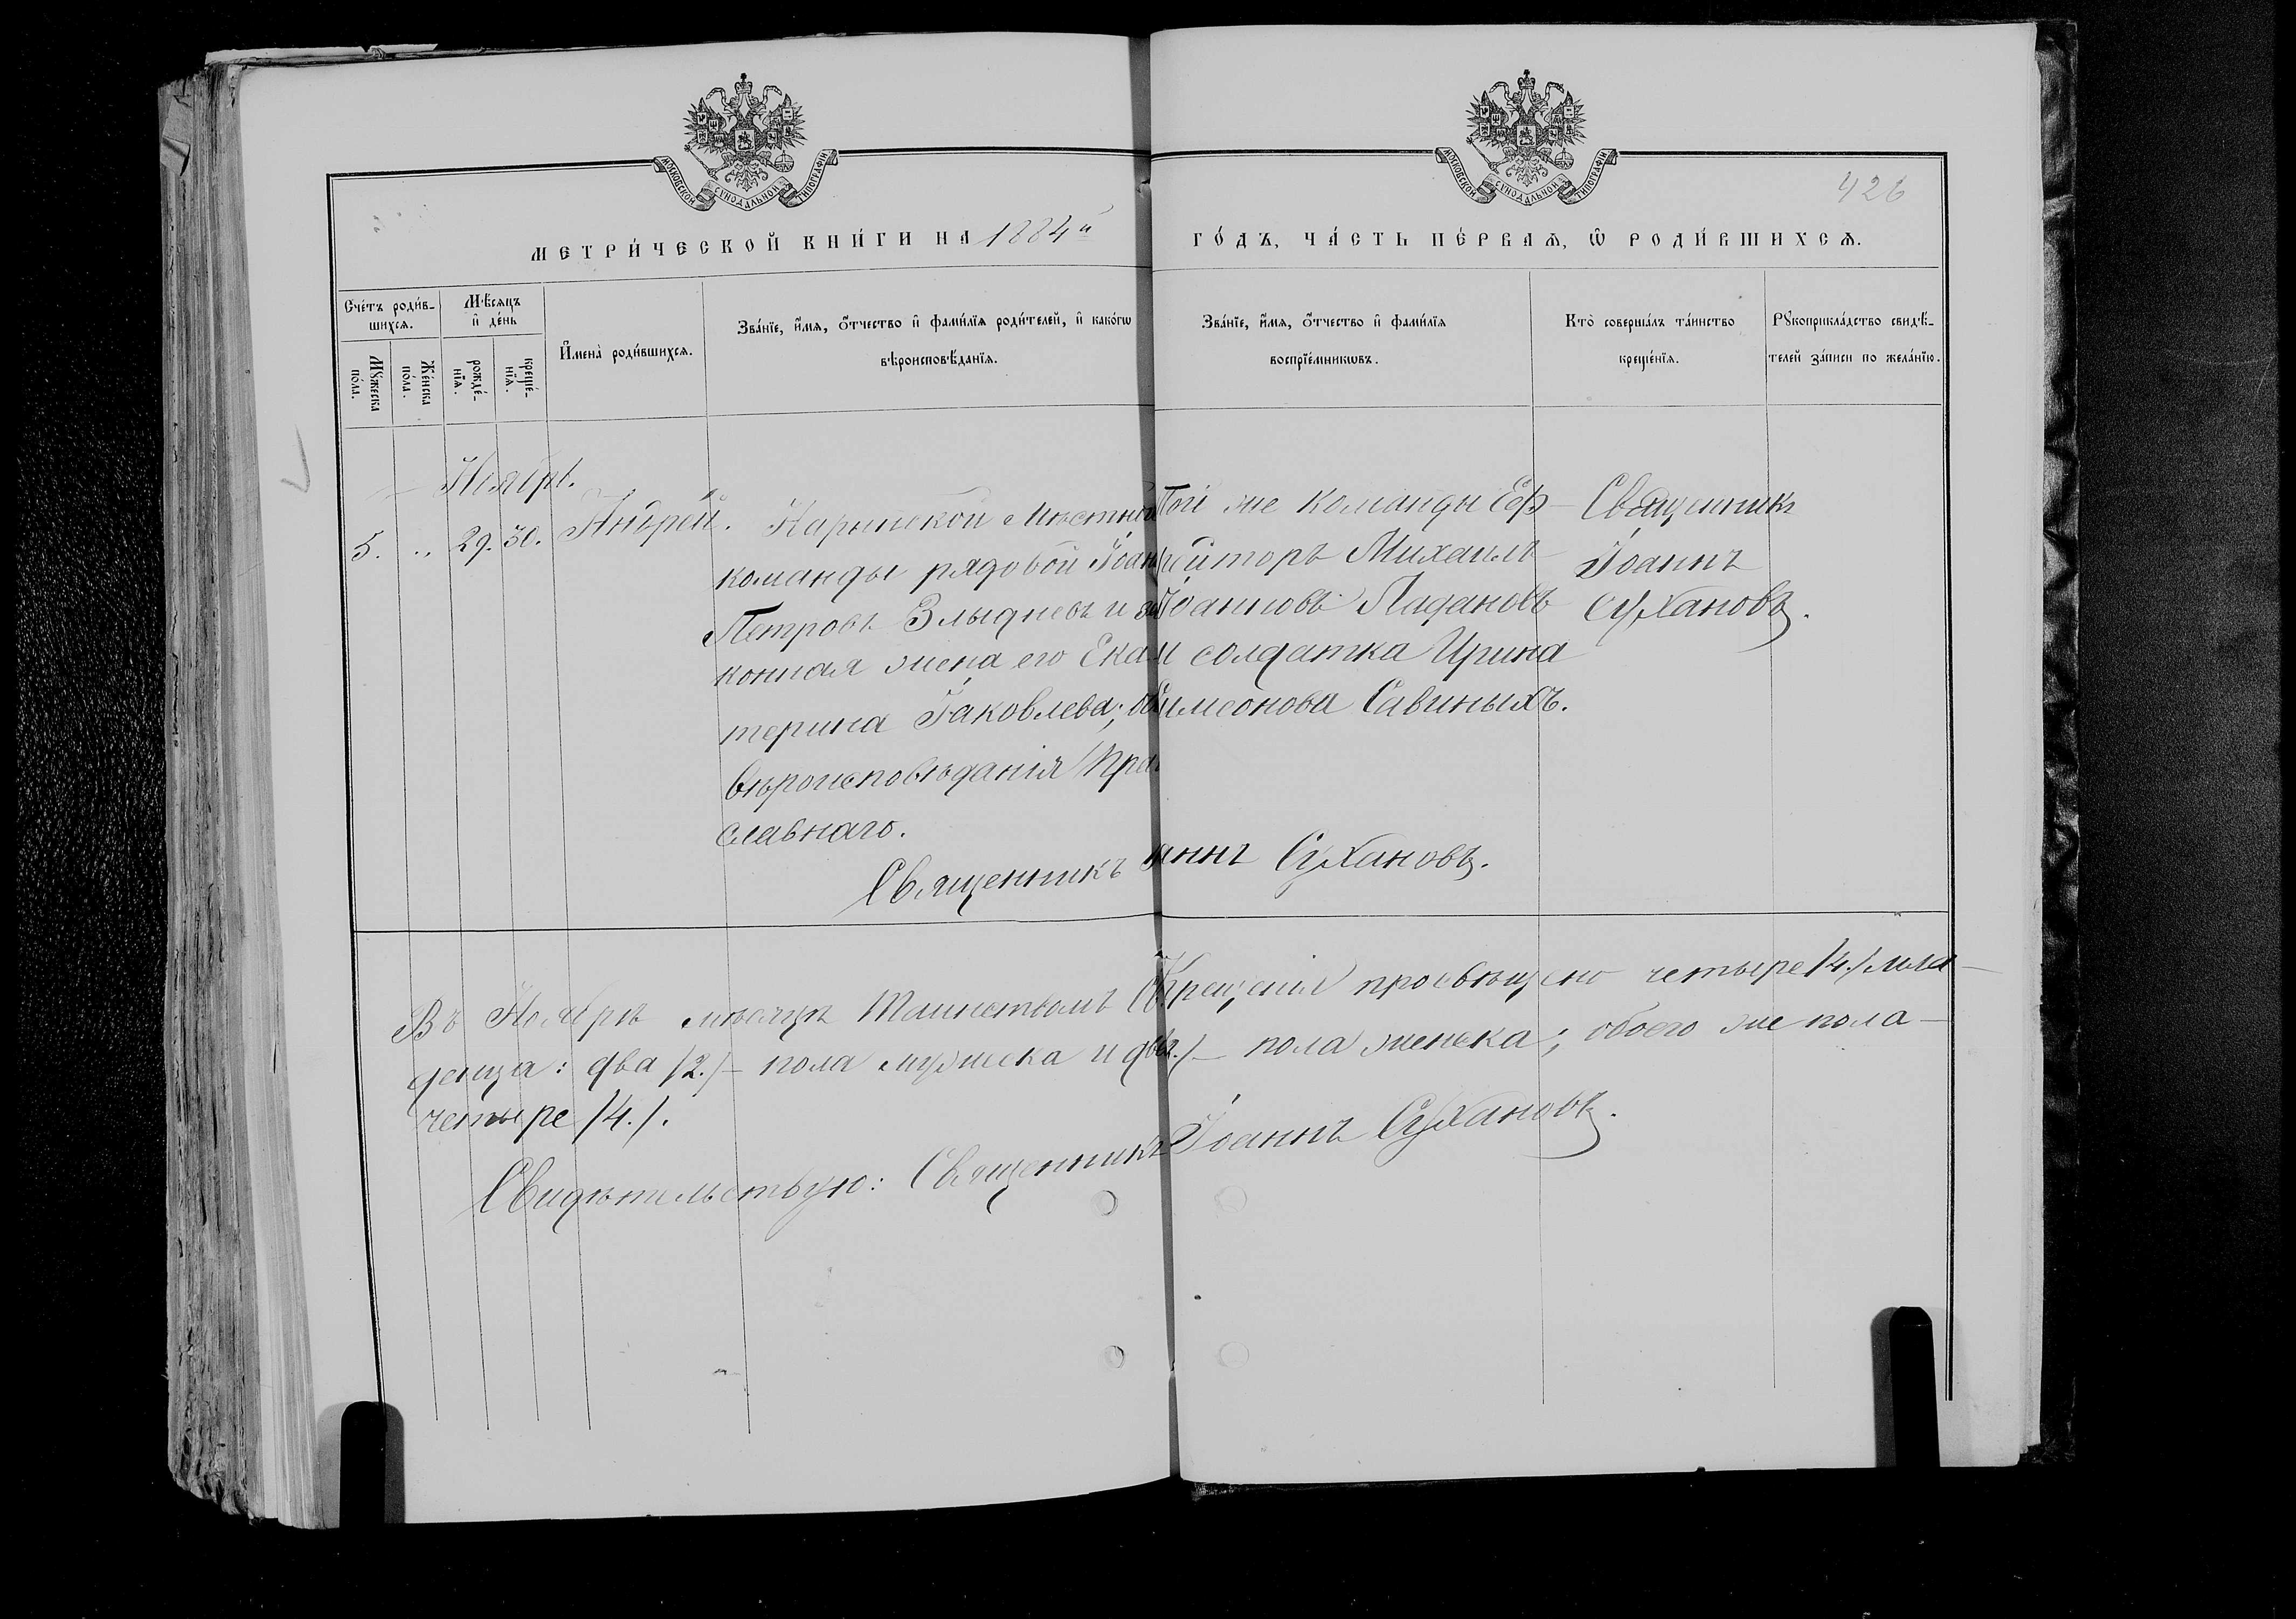 426
МОСКОВСКОЙ СУНОДАЛЬНОЙ ТИПОГРАФІИ
МОСКОВСКОЙ СУНОДАЛЬНОЙ ТИПОГРАФІИ
МЕТРИ́ЧЕСКОЙ КНИ́ГИ НА 1884й ГО́ДЪ, ЧА́СТЬ ПЕ́РВАѦ, Ѡ҆ РОДИ́ВШИХСѦ.
Сче́тъ роди́в-
шихсѧ.
Мꙋ́жеска
по́ла.
Же́нска
по́ла.
Мѣ́сѧцъ
и҆ де́нь
рожде́-
нїѧ.
креще́-
нїѧ.
И҆мена̀ роди́вшихсѧ.
Зва́нїе, и҆́мѧ, ѻ҆́тчество и҆ фами́лїѧ роди́телей, и҆ како́гѡ
вѣроисповѣ́данїѧ.
Зва́нїе, и҆́мѧ, ѻ҆́тчество и҆ фами́лїѧ
воспрїе́мникѡвъ.
Кто̀ соверша́лъ та́инство
креще́нїѧ.
Рꙋкоприкла́дство свидѣ́-
телей за́писи по жела́нїю.
Ноябрь.
5. „ 29. 30. Андрей.
Нарымской Мѣстной
команды рядовой Іоан
Петровъ Злыдневъ и за
конная жена его Ека
терина Іаковлева; об
вѣроисповѣданія Пра
славнаго.
Той же команды Еф-
рейторъ Михаилъ
Іоанновъ Ладановъ
и солдатка Ирина
Симеонова Савиныхъ.
Священникъ
Іоаннъ
Сухановъ.
Священникъ аннъ Сухановъ.
Въ Ноябрѣ мѣсяцѣ Таинствомъ Св Крещенія просвѣщено четыре /4./ мла-
денца: два /2./ – пола мужеска и два 2./ – пола женска; обоего же пола –
четыре /4./.
Свидѣтельствую: Священникъ Іоаннъ Сухановъ.